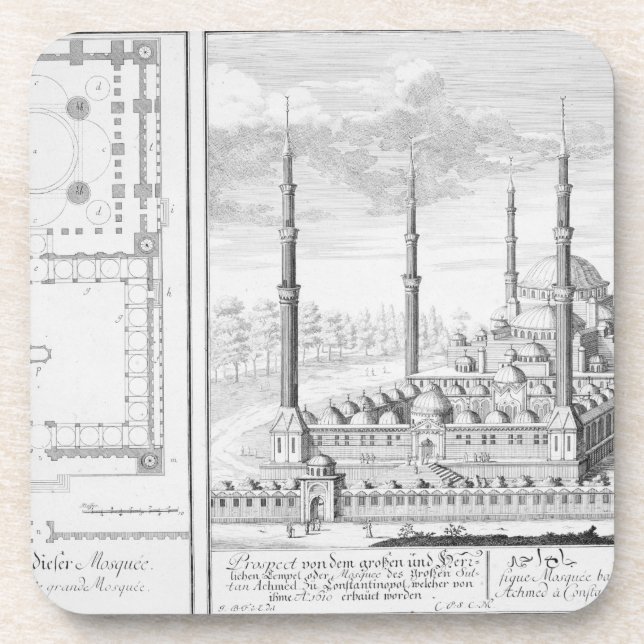 dieser Mosquée.
grande Mosquée.
Prospect von dem großen und Herr=
lichen Tempel oder Mosquée des Großen Sul=
tan Achmed zu Constantinopel, welcher von
ihme A° 1610 erbauet worden
C. P. S. C. M.
fique Mosquée ba
Achmed à Consta
a
c
c
c
d
d
l
i
e
g
g
h
p
m
n